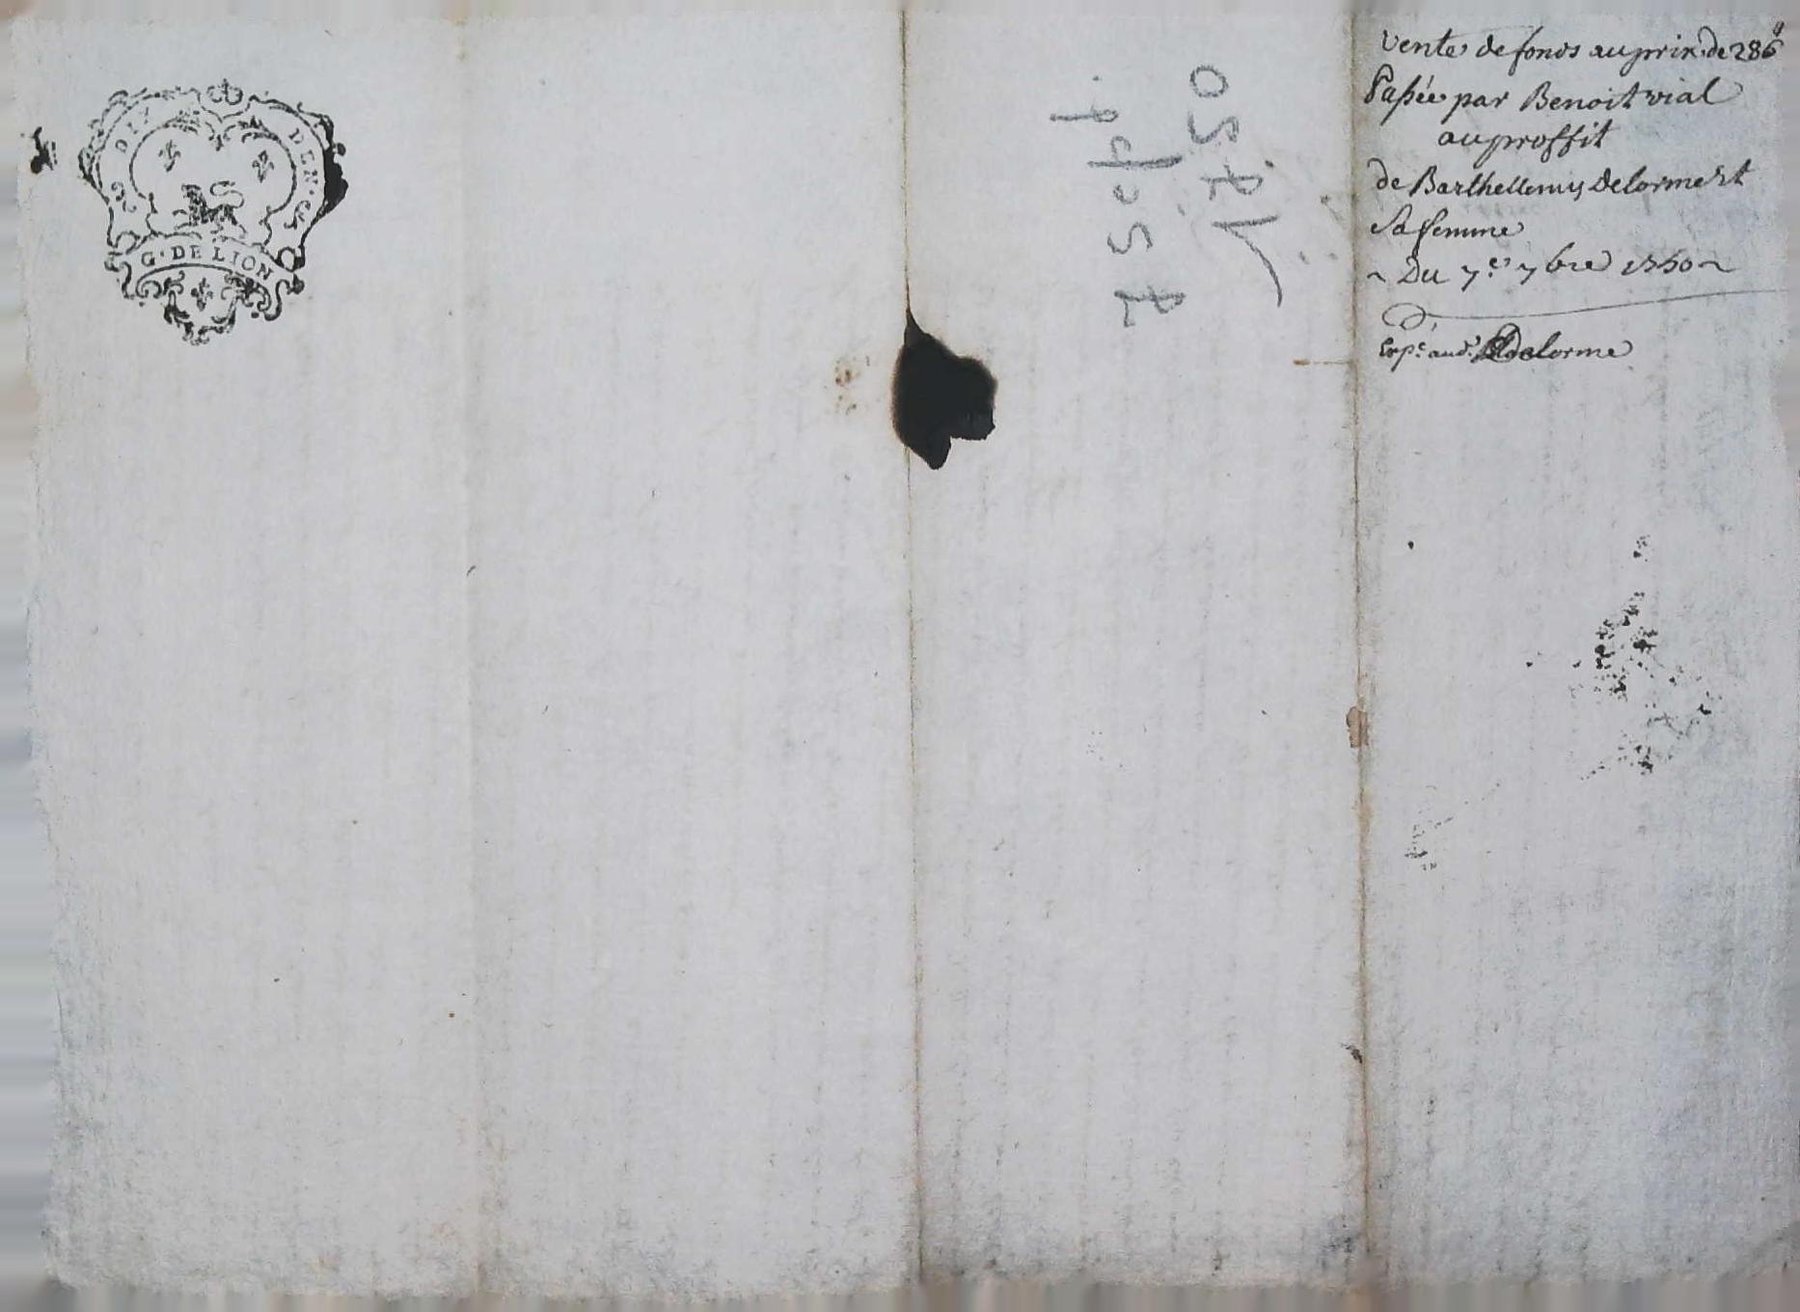 DIX DEN.
G. DE LION
vente de fonds au prix de 286
Passée par Benoit vial
au proffit
de Barthellemy Delorme et
Sa femme
~ Du 7e 7bre 1750 ~
Exp.e aud. Delorme